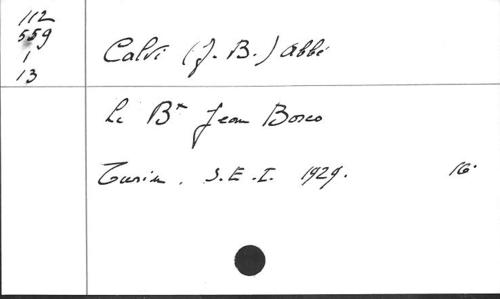 112
559
1
13
Calvi (J. B.) abbé
Le Bx Jean Bosco
Turin. S. E. I. 1929. 16°